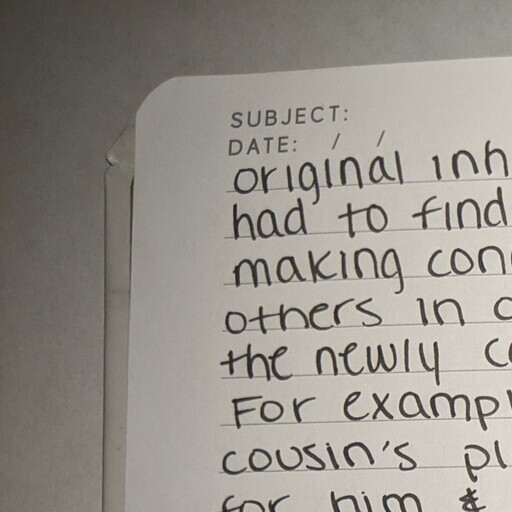 SUBJECT:
DATE: / /
original inh
had to find
making con
others in
the newly
For examp
cousin's pl
for him &